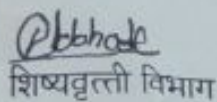 शिष्यवृत्ती विभाग